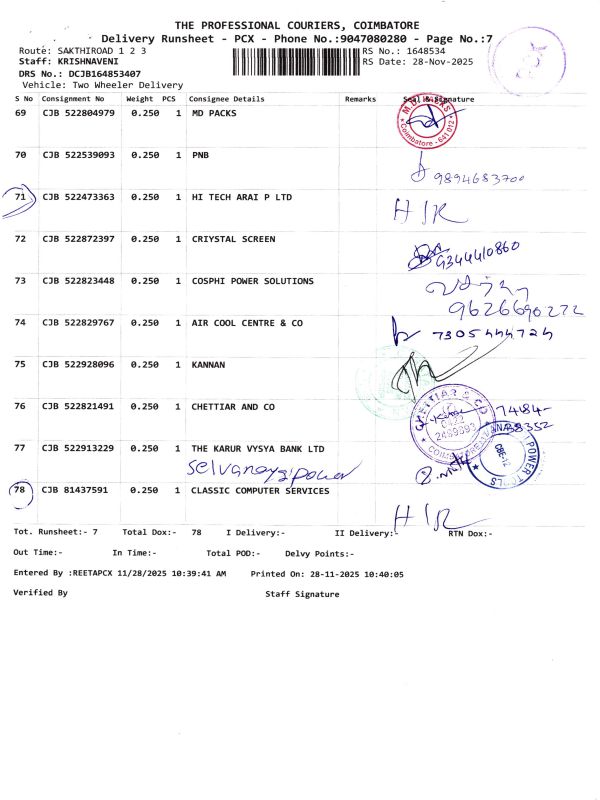 THE PROFESSIONAL COURIERS, COIMBATORE
Delivery Runsheet - PCX - Phone No.:9047080280 - Page No.:7
Route: SAKTHIROAD 1 2 3
RS No.: 1648534
Staff: KRISHNAVENI
RS Date: 28-Nov-2025
DRS No.: DCJB164853407
Vehicle: Two Wheeler Delivery
S No Consignment No Weight PCS Consignee Details Remarks Seal & Signature
69 CJB 522804979 0.250 1 MD PACKS
Coimbatore - 641 012
70 CJB 522539093 0.250 1 PNB
9894683700
71 CJB 522473363 0.250 1 HI TECH ARAI P LTD
H I R
72 CJB 522872397 0.250 1 CRIYSTAL SCREEN
9344410860
73 CJB 522823448 0.250 1 COSPHI POWER SOLUTIONS
9626690272
74 CJB 522829767 0.250 1 AIR COOL CENTRE & CO
7305444724
75 CJB 522928096 0.250 1 KANNAN
76 CJB 522821491 0.250 1 CHETTIAR AND CO
CHETTIAR & CO
0422
2459393
74184-
38352
77 CJB 522913229 0.250 1 THE KARUR VYSYA BANK LTD
POWER TOOLS
CBE-12
78 CJB 81437591 0.250 1 CLASSIC COMPUTER SERVICES
H I R
Tot. Runsheet:- 7 Total Dox:- 78 I Delivery:- II Delivery:- RTN Dox:-
Out Time:- In Time:- Total POD:- Delvy Points:-
Entered By :REETAPCX 11/28/2025 10:39:41 AM Printed On: 28-11-2025 10:40:05
Verified By Staff Signature